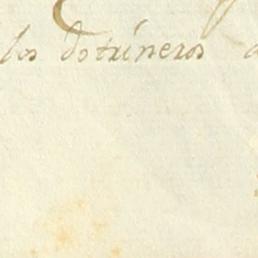 los dotrineros